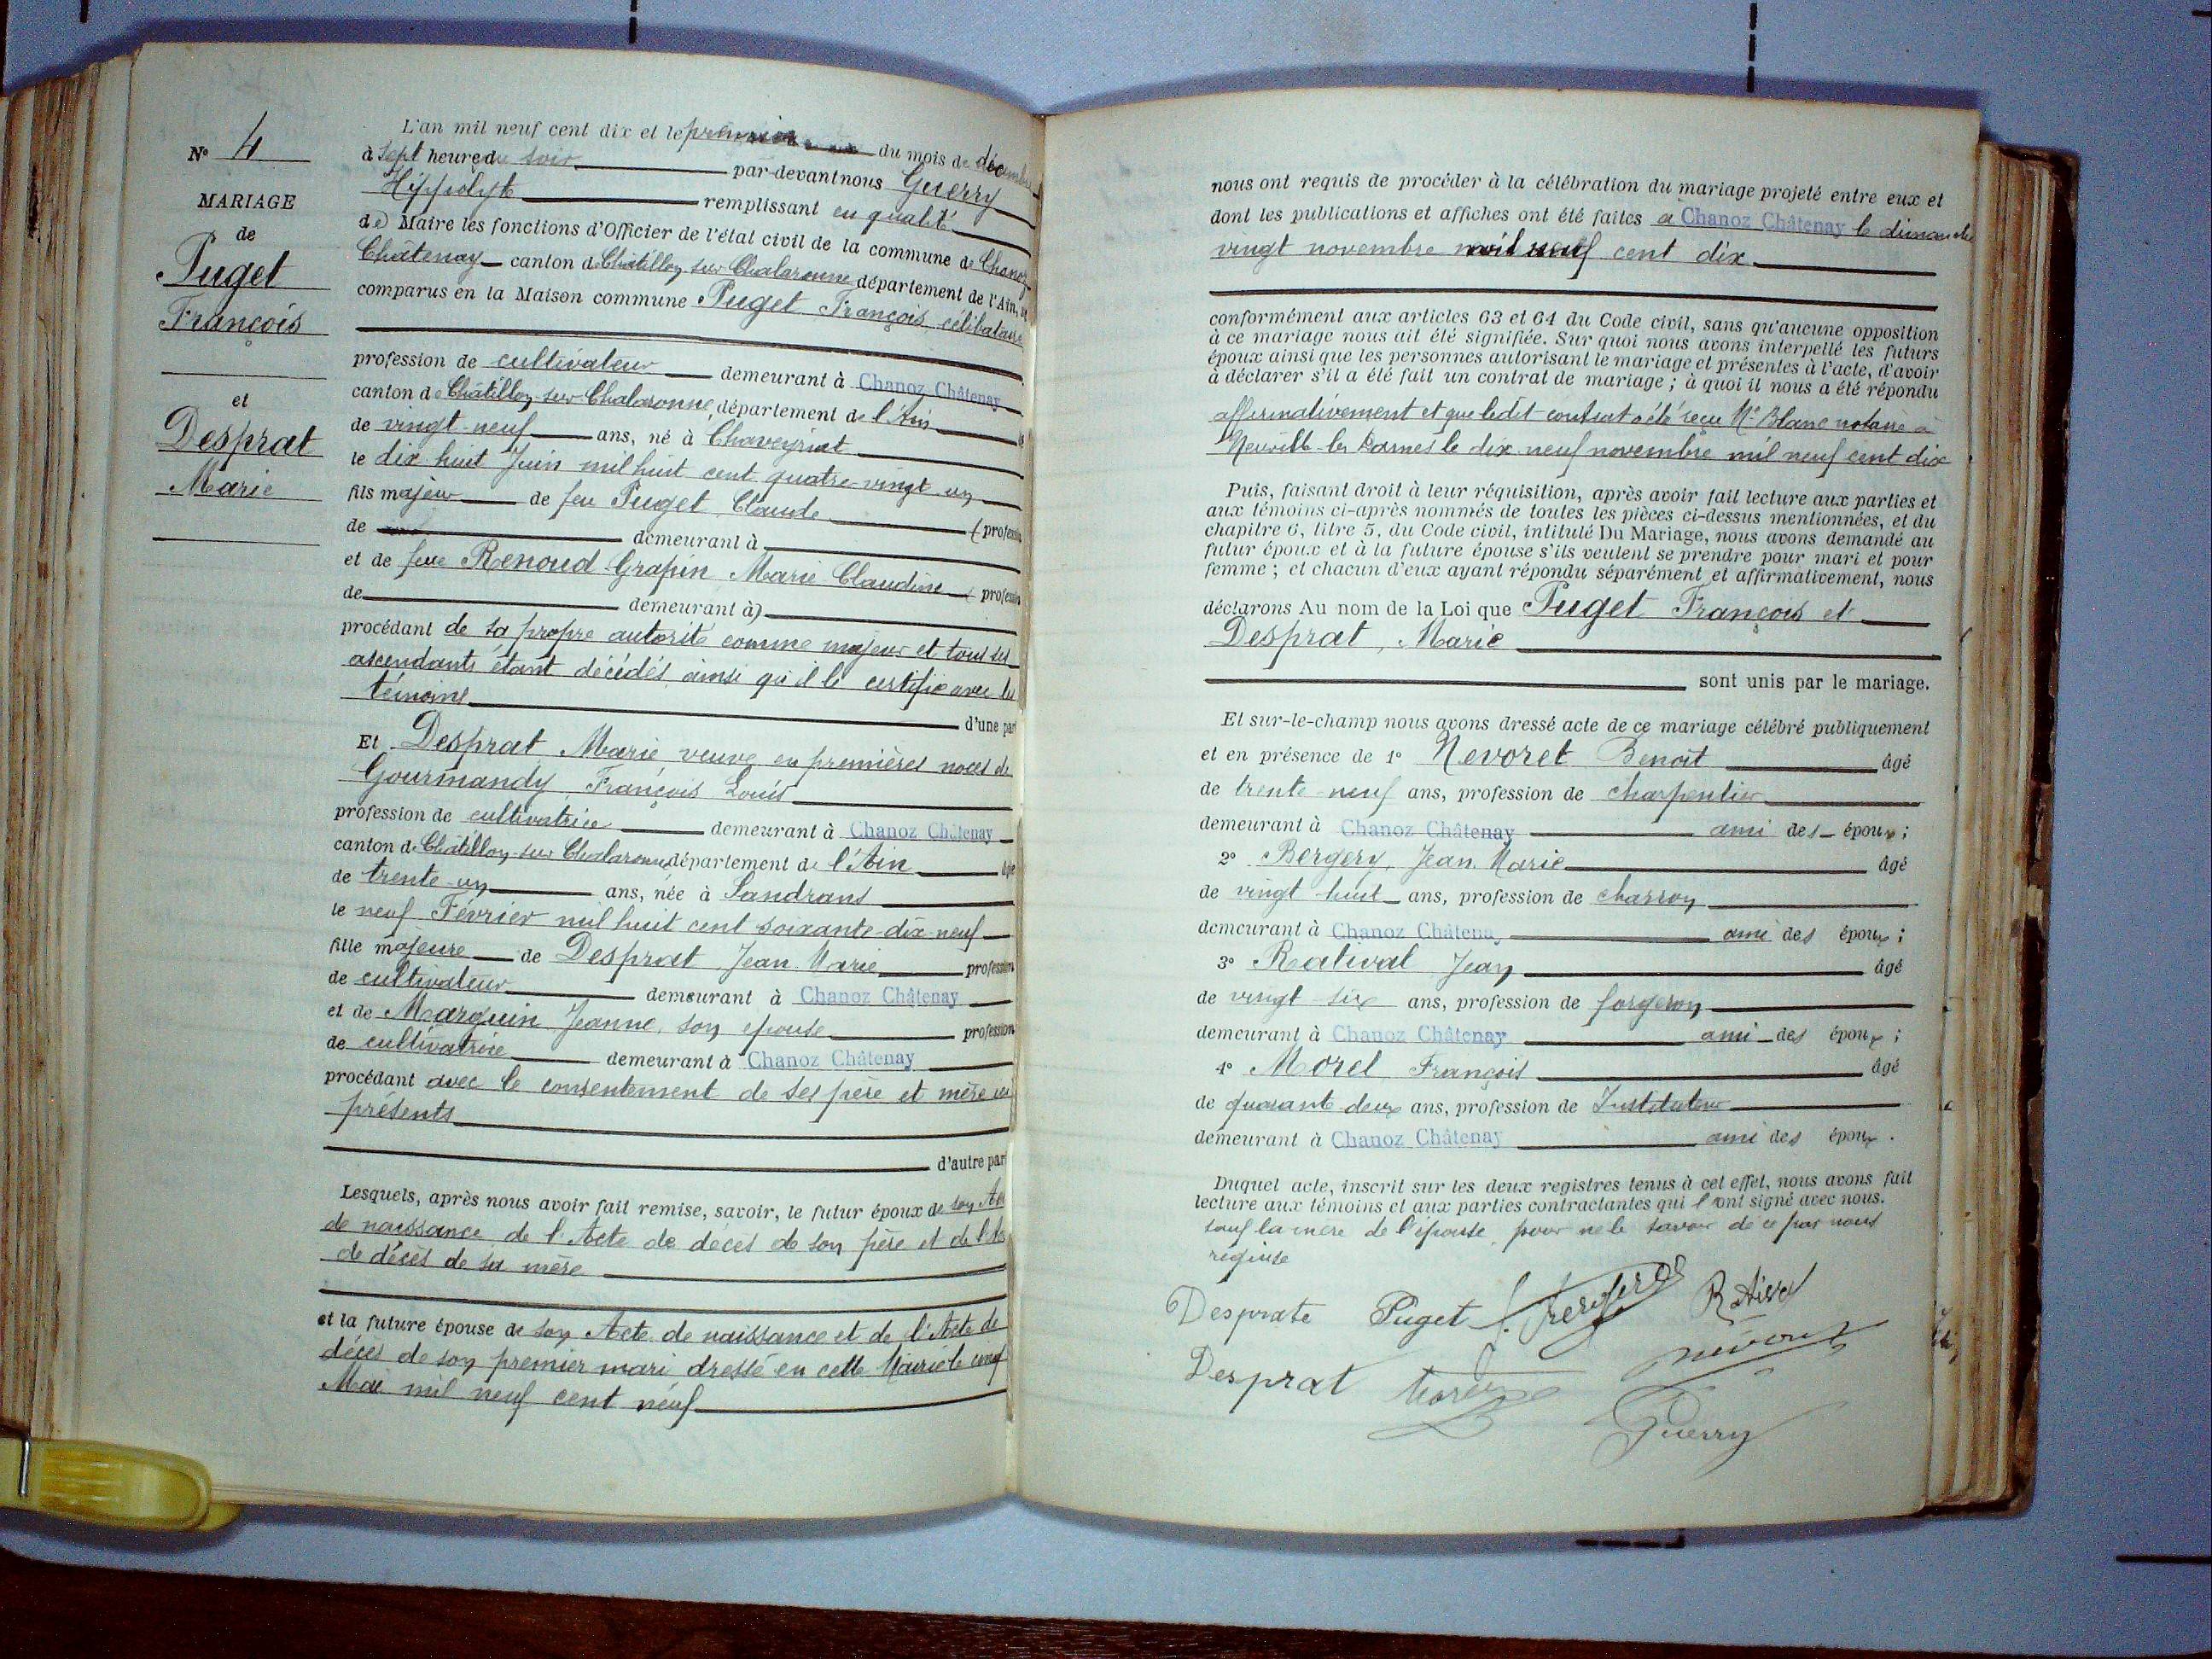 N° 4
MARIAGE
de
Puget
François
et
Desprat
Marie
L'an mil neuf cent dix et le premier du mois de décembre
à sept heure du soir par-devant nous Guerry
Hippolyte remplissant en qualité
de) Maire les fonctions d'Officier de l'état civil de la commune de Chanoz
Châtenay canton de Châtillon sur Chalaronne département de l'Ain,
comparus en la Maison commune Puget François célibataire
profession de cultivateur demeurant à Chanoz Châtenay
canton de Châtillon-sur-Chalaronne, département de l'Ain
de vingt-neuf ans, né à Chaveyriat
le dix huit Juin mil huit cent quatre-vingt un
fils majeur de feu Puget Claude (profession
de demeurant à
et de feue Renoud-Grapin Marie Claudine (profession
de demeurant à)
procédant de sa propre autorité comme majeur et tous ses
ascendants étant décédés ainsi qu'il le certifie avec les
témoins d'une part
Et Desprat Marie veuve en premières noces de
Gourmandy, François Louis
profession de cultivatrice demeurant à Chanoz Châtenay
canton de Châtillon-sur Chalaronne département de l'Ain âgée
de trente-un ans, née à Sandrans
le neuf Février mil huit cent soixante-dix-neuf
fille majeure de Desprat Jean Marie profession
de cultivateur demeurant à Chanoz Châtenay
et de Marguin Jeanne, son épouse profession
de cultivatrice demeurant à Chanoz Châtenay
procédant avec le consentement de ses père et mère ici
présents
d'autre part
Lesquels, après nous avoir fait remise, savoir, le futur époux de son Acte
de naissance de l'Acte de décès de son père et de l'Acte
de décès de sa mère
et la future épouse de son Acte de naissance et de l'Acte de
décès de son premier mari dressé en cette Mairie le
Mai mil neuf cent neuf
nous ont requis de procéder à la célébration du mariage projeté entre eux et
dont les publications et affiches ont été faites à Chanoz Châtenay le dimanche
vingt novembre mil neuf cent dix
conformément aux articles 63 et 64 du Code civil, sans qu'aucune opposition
à ce mariage nous ait été signifiée. Sur quoi nous avons interpellé les futurs
époux ainsi que les personnes autorisant le mariage et présentes à l'acte, d'avoir
à déclarer s'il a été fait un contrat de mariage ; à quoi il nous a été répondu
affirmativement et que ledit contrat a été reçu Me Blanc notaire à
Neuville-les Dames le dix-neuf novembre mil neuf cent dix
Puis, faisant droit à leur réquisition, après avoir fait lecture aux parties et
aux témoins ci-après nommés de toutes les pièces ci-dessus mentionnées, et du
chapitre 6, titre 5, du Code civil, intitulé Du Mariage, nous avons demandé au
futur époux et à la future épouse s'ils veulent se prendre pour mari et pour
femme ; et chacun d'eux ayant répondu séparément et affirmativement, nous
déclarons Au nom de la Loi que Puget François et
Desprat, Marie
sont unis par le mariage.
Et sur-le-champ nous avons dressé acte de ce mariage célébré publiquement
et en présence de 1° Nevoret Benoît âgé
de trente-neuf ans, profession de charpentier
demeurant à Chanoz Châtenay ami des époux ;
2° Bergery, Jean Marie âgé
de vingt-huit ans, profession de charron
demeurant à Chanoz Châtenay ami des époux ;
3° Rativat Jean âgé
de vingt-six ans, profession de forgeron
demeurant à Chanoz Châtenay ami des époux ;
4° Morel François âgé
de quarante-deux ans, profession de Instituteur
demeurant à Chanoz Châtenay ami des époux.
Duquel acte, inscrit sur les deux registres tenus à cet effet, nous avons fait
lecture aux témoins et aux parties contractantes qui l'ont signé avec nous.
sauf la mère de l'épouse, pour ne le savoir de ce par nous
requise
Desprate Puget Rativat
Desprat Morel
Guerry